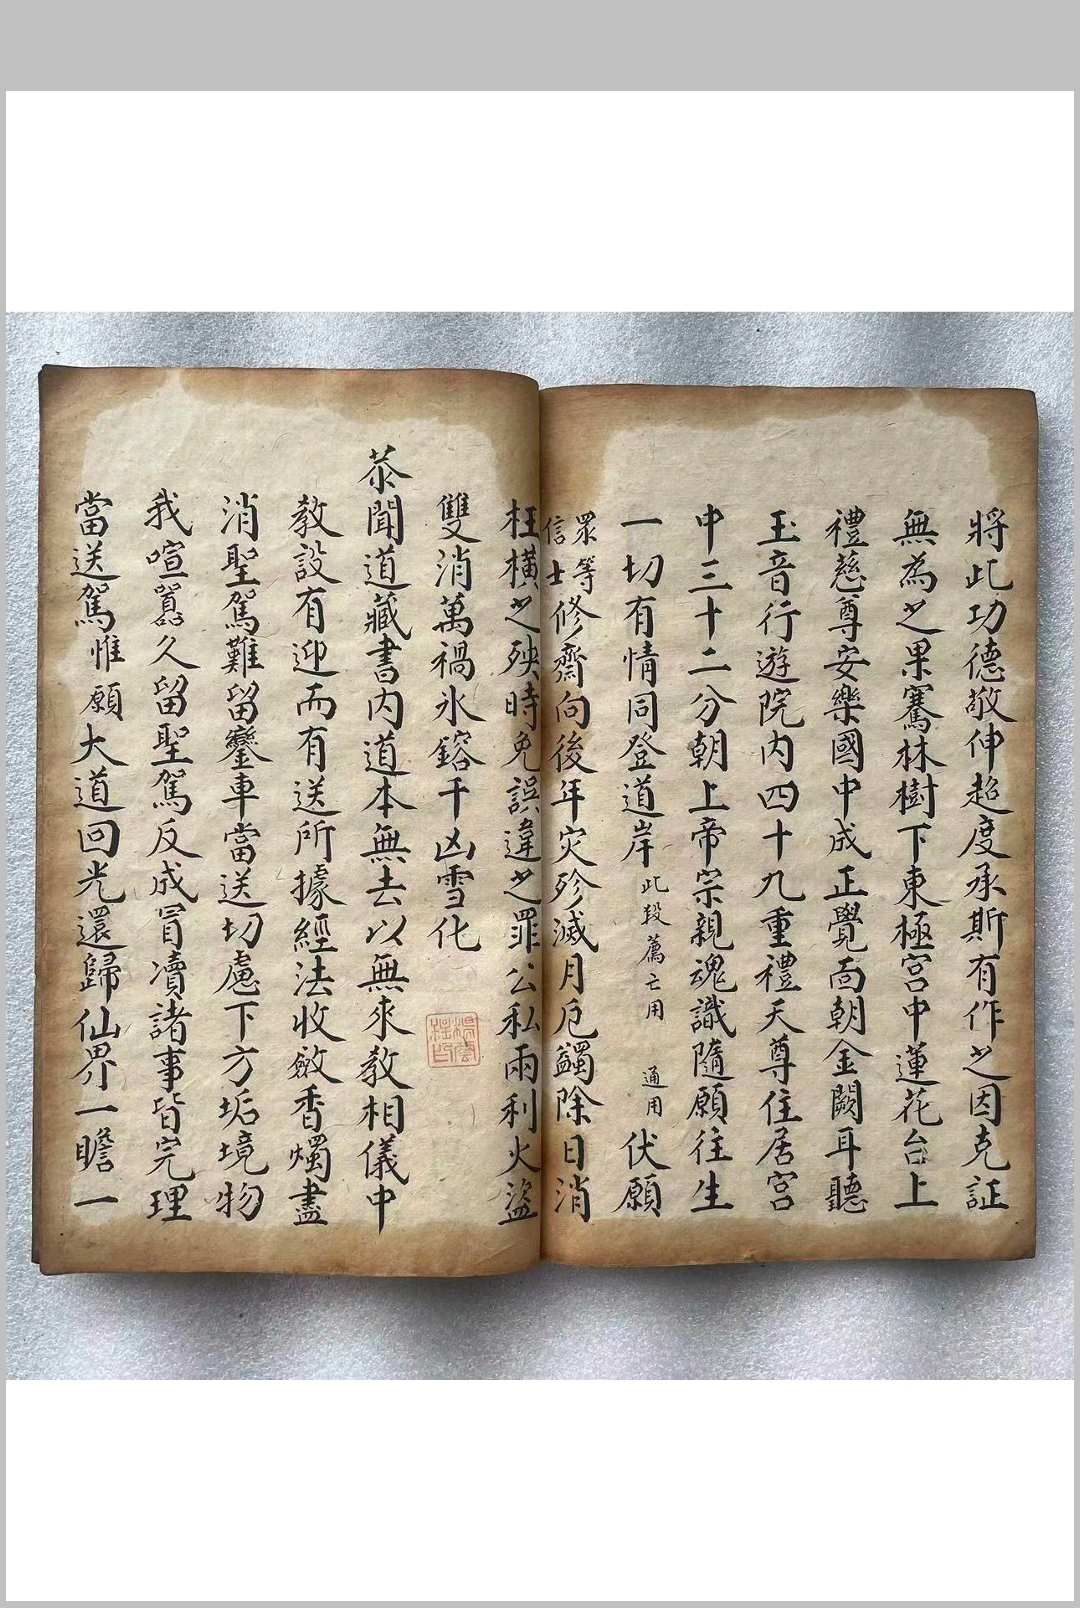 將此功德敬伸超度承斯有作之因克証
無為之果騫林樹下東極宮中蓮花台上
禮慈尊安樂國中成正覺面朝金闕耳聽
玉音行遊院內四十九重禮天尊住居宮
中三十二分朝上帝宗親魂識隨願往生
一切有情同登道岸 此段薦亡用 通用 伏願
眾等
信士
修齋向後年災殄滅月厄蠲除日消
枉橫之殃時免誤違之罪公私兩利火盜
雙消萬禍氷鎔千凶雪化
恭聞道藏書內道本無去以無來教相儀中
教設有迎而有送所據經法收斂香燭盡
消聖駕難留鑾車當送切慮下方垢境物
我喧囂久留聖駕反成冒瀆諸事皆完理
當送駕惟願大道回光還歸仙界一瞻一